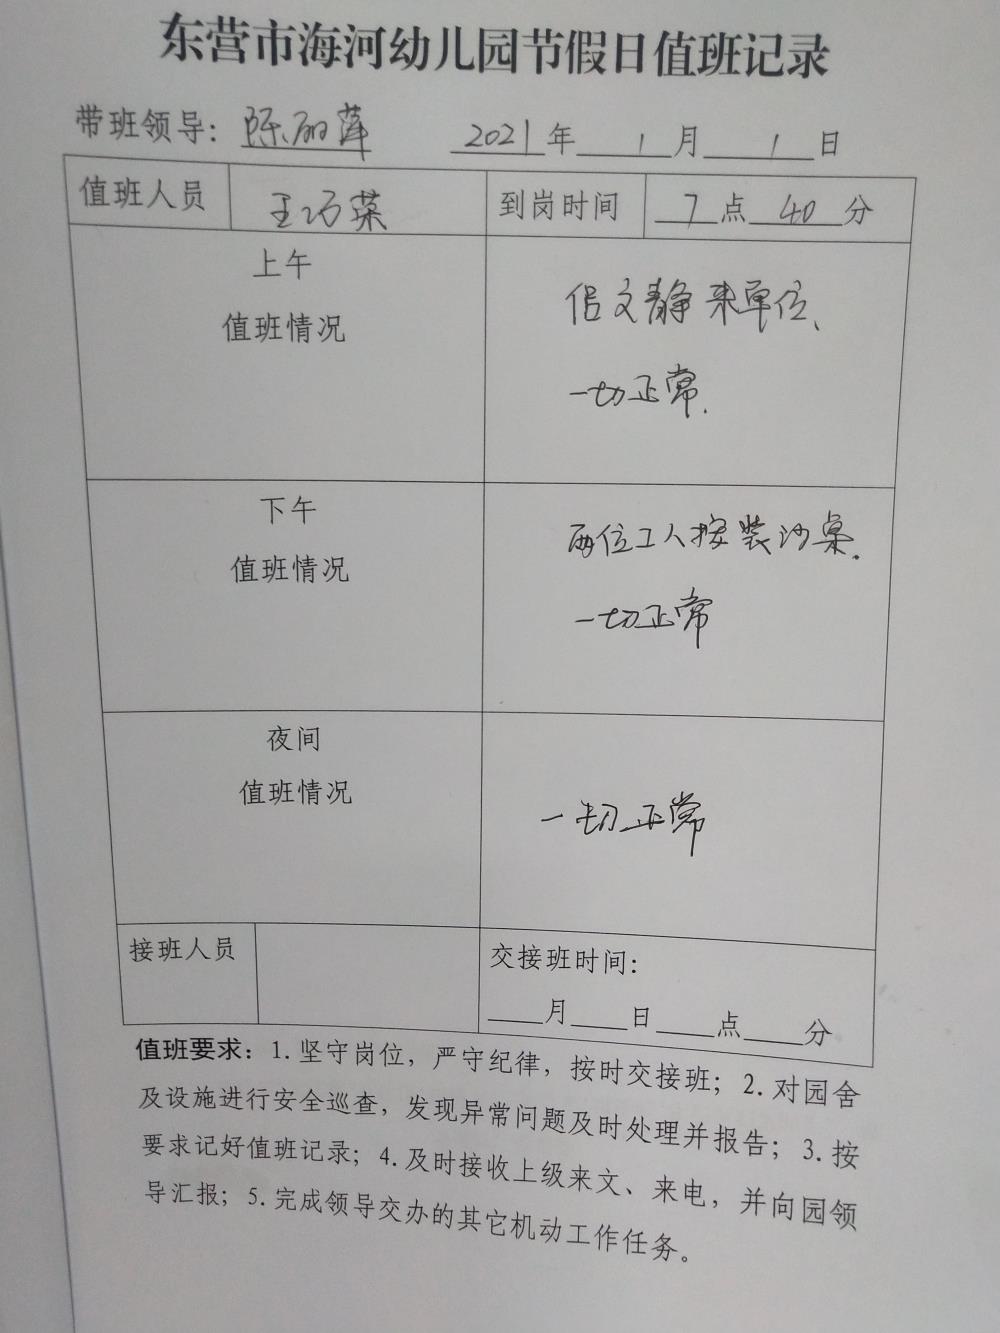 东营市海河幼儿园节假日值班记录
带班领导：陈丽萍 2021年1月1日
值班人员 王巧菜 到岗时间 7点40分
上午
值班情况
侣文静来单位、
一切正常.
下午
值班情况
两位工人按装沙桌.
一切正常
夜间
值班情况
一切正常
接班人员
交接班时间：
____月____日____点____分
值班要求：1. 坚守岗位，严守纪律，按时交接班；2. 对园舍
及设施进行安全巡查，发现异常问题及时处理并报告；3. 按
要求记好值班记录；4. 及时接收上级来文、来电，并向园领
导汇报；5. 完成领导交办的其它机动工作任务。